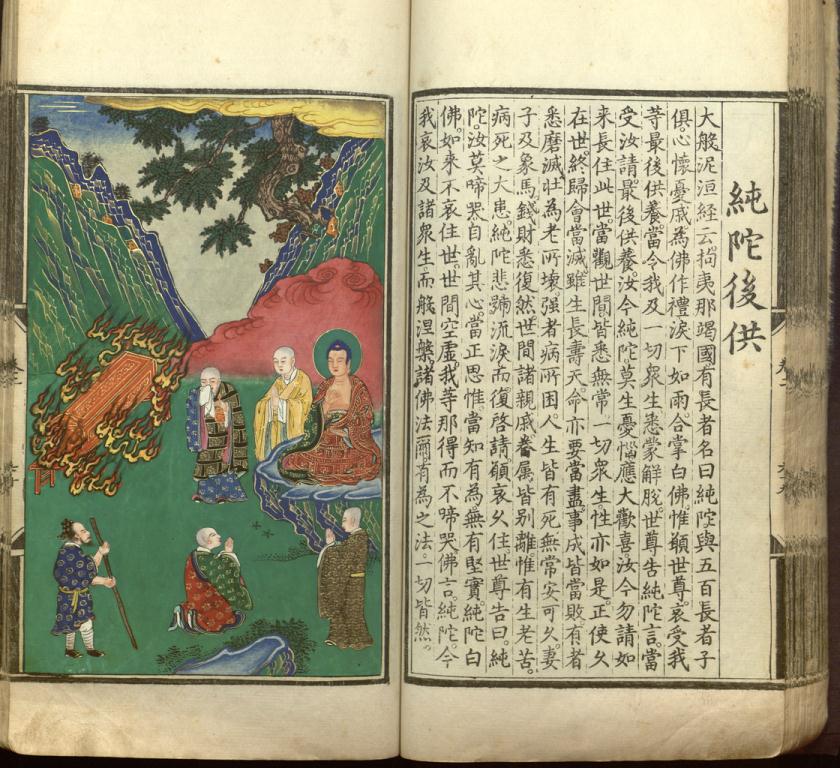 純陀後供
大般泥洹經云拘夷那竭國有長者名曰純陀與五百長者子
俱。心懷憂戚為佛作禮淚下如雨合掌白佛惟願世尊哀受我
等最後供養當令我及一切眾生悉蒙解脫世尊告純陀言當
受汝請最後供養汝今純陀莫生憂惱應大歡喜汝今勿請如
來長住此世當觀世間皆悉無常一切眾生性亦如是正使久
在世終歸會當滅雖生長壽天命亦要當盡事成皆當敗有者
悉磨滅壯為老所壞强者病所困人生皆有死無常安可久妻
子及象馬錢財悉復然世間諸親戚眷属皆別離惟有生老苦。
病死之大患純陀悲號流淚而復啓請願哀久住世尊告曰純
陀汝莫啼哭自亂其心當正思惟當知有為無有堅實純陀白
佛如來不哀住世世間空虛我等那得而不啼哭佛言純陀今
我哀汝及諸眾生而般涅槃諸佛法爾有為之法一切皆然。